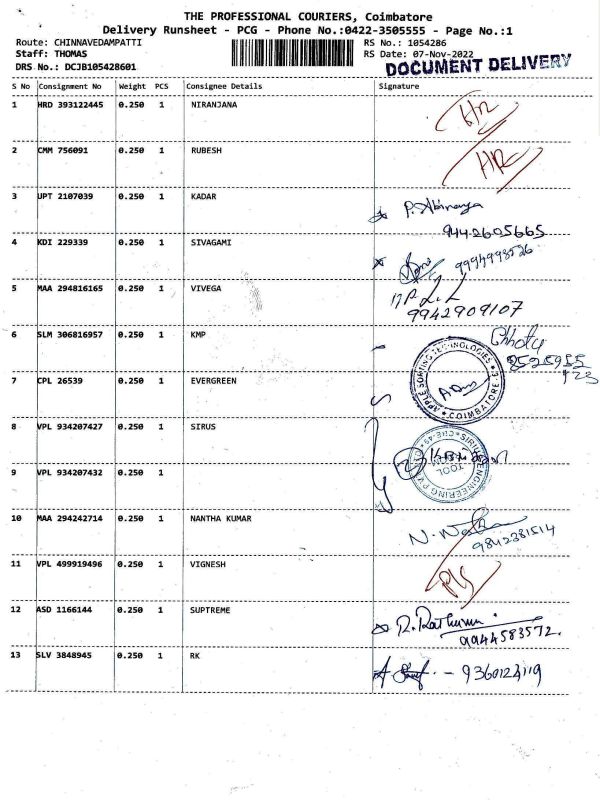 THE PROFESSIONAL COURIERS, Coimbatore
Delivery Runsheet - PCG - Phone No.:0422-3505555 - Page No.:1
Route: CHINNAVEDAMPATTI RS No.: 1054286
Staff: THOMAS RS Date: 07-Nov-2022
DRS No.: DCJB105428601 DOCUMENT DELIVERY
S No Consignment No Weight PCS Consignee Details Signature
1 HRD 393122445 0.250 1 NIRANJANA
2 CMM 756091 0.250 1 RUBESH
3 UPT 2107039 0.250 1 KADAR P. Abinaya
9442605665
4 KDI 229339 0.250 1 SIVAGAMI 9994998526
5 MAA 294816165 0.250 1 VIVEGA
9942909107
6 SLM 306816957 0.250 1 KMP Chhotu
7 CPL 26539 0.250 1 EVERGREEN APPLE SORTING TECHNOLOGIES COIMBATORE
8 VPL 934207427 0.250 1 SIRUS
9 VPL 934207432 0.250 1
10 MAA 294242714 0.250 1 NANTHA KUMAR
9842381514
11 VPL 499919496 0.250 1 VIGNESH
12 ASD 1166144 0.250 1 SUPTREME
9944583572.
13 SLV 3848945 0.250 1 RK